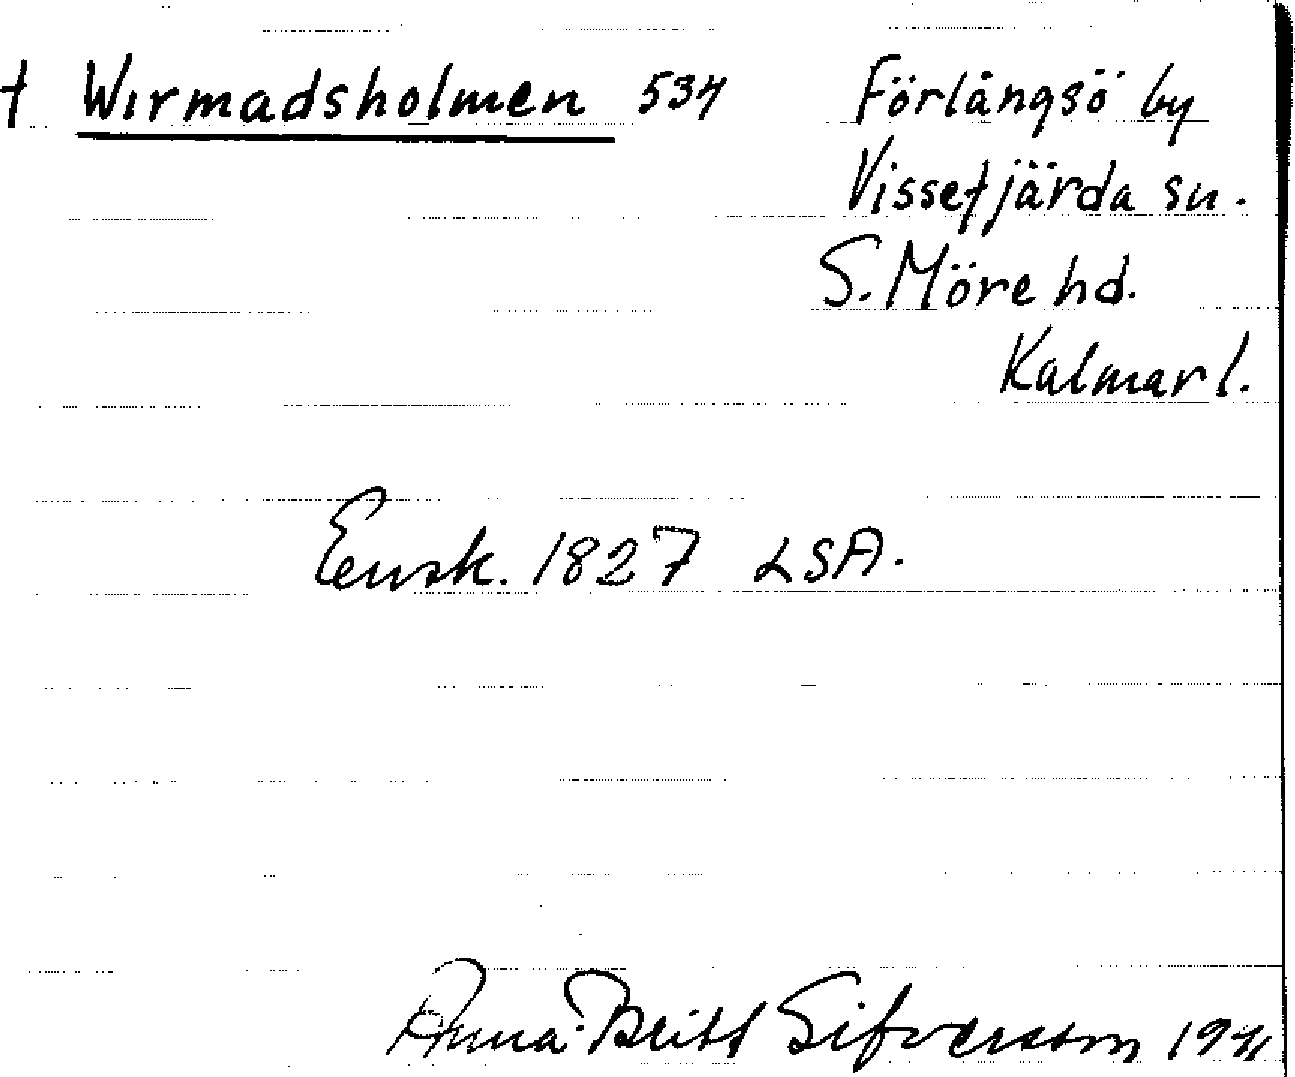 † Wirmadsholmen 534 Förlångsö by
Vissefjärda sn.
S. Möre hd.
Kalmar l.
Ensk. 1827 LSA.
Anna-Britt Sifverström